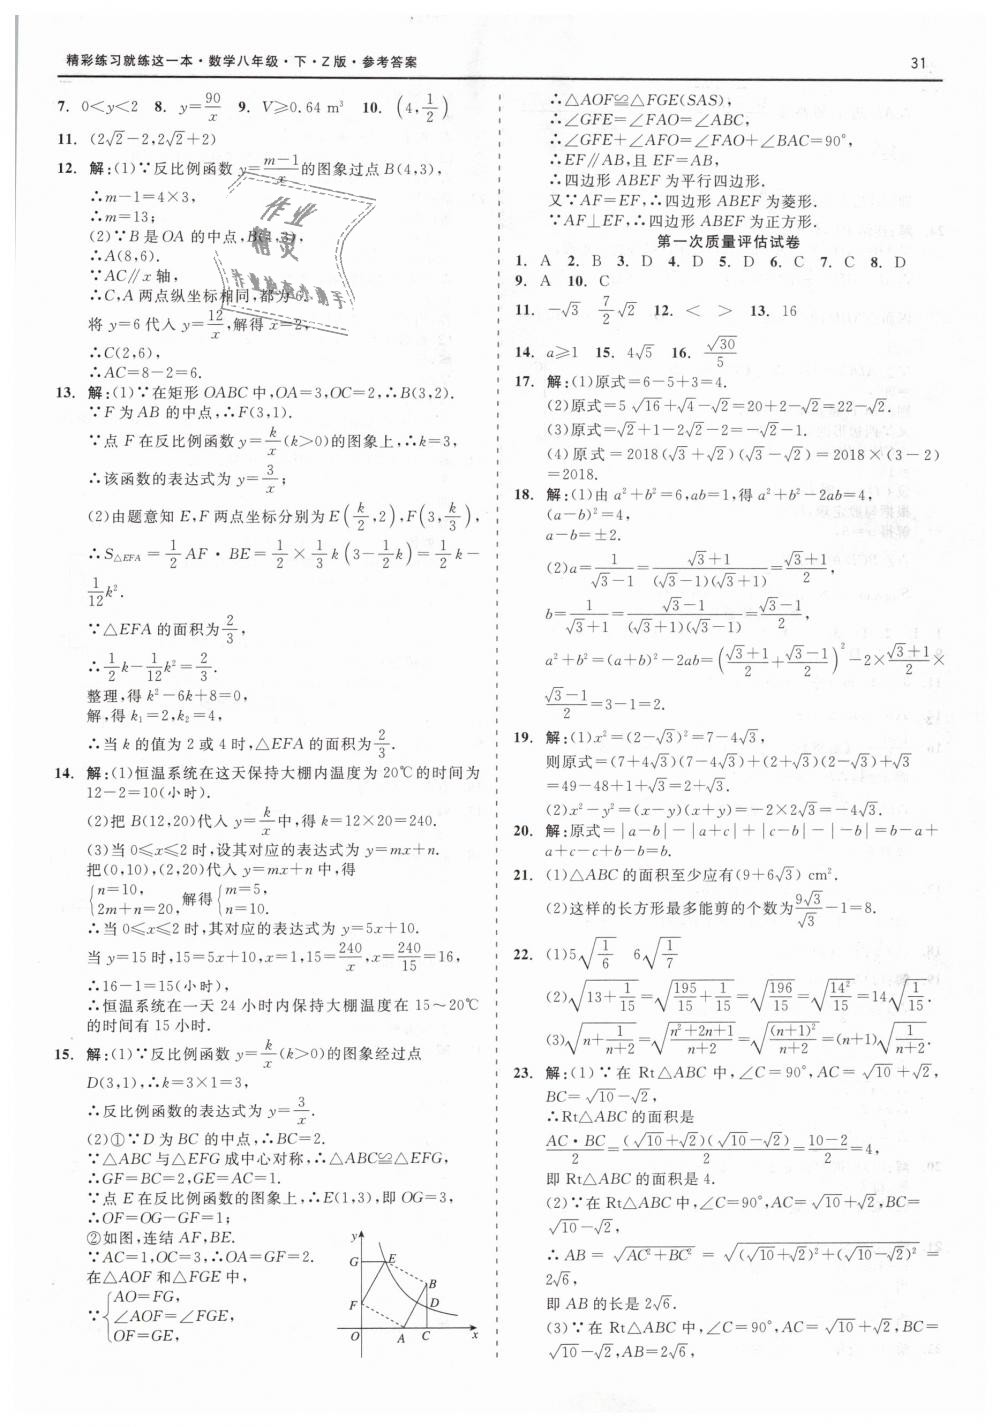 精彩练习就练这一本·数学八年级·下·Z版·参考答案
31
7. 0<y<2 8. y=90/x 9. V≥0.64 m³ 10. (4,1/2)
11. (2√2-2,2√2+2)
12. 解:(1)∵反比例函数 y=(m-1)/x 的图象过点 B(4,3),
∴m-1=4×3,
∴m=13;
(2)∵B 是 OA 的中点,B(4,3),
∴A(8,6).
∵AC∥x 轴,
∴C,A 两点纵坐标相同,都为 6.
将 y=6 代入 y=12/x,解得 x=2,
∴C(2,6),
∴AC=8-2=6.
13. 解:(1)∵在矩形 OABC 中,OA=3,OC=2,∴B(3,2).
∵F 为 AB 的中点,∴F(3,1).
∵点 F 在反比例函数 y=k/x(k>0)的图象上,∴k=3,
∴该函数的表达式为 y=3/x;
(2)由题意知 E,F 两点坐标分别为 E(k/2,2),F(3,k/3),
∴S△EFA=1/2 AF·BE=1/2×1/3 k(3-1/2 k)=1/2 k-
1/12 k².
∵△EFA 的面积为 2/3,
∴1/2 k-1/12 k²=2/3.
整理,得 k²-6k+8=0,
解,得 k₁=2,k₂=4,
∴当 k 的值为 2 或 4 时,△EFA 的面积为 2/3.
14. 解:(1)恒温系统在这天保持大棚内温度为 20℃的时间为
12-2=10(小时).
(2)把 B(12,20)代入 y=k/x 中,得 k=12×20=240.
(3)当 0≤x≤2 时,设其对应的表达式为 y=mx+n.
把(0,10),(2,20)代入 y=mx+n 中,得
{n=10, 2m+n=20, 解得 {m=5, n=10.
∴当 0≤x≤2 时,其对应的表达式为 y=5x+10.
当 y=15 时,15=5x+10,x=1,15=240/x,x=240/15=16,
∴16-1=15(小时),
∴恒温系统在一天 24 小时内保持大棚温度在 15～20℃
的时间有 15 小时.
15. 解:(1)∵反比例函数 y=k/x(k>0)的图象经过点
D(3,1),∴k=3×1=3,
∴反比例函数的表达式为 y=3/x.
(2)①∵D 为 BC 的中点,∴BC=2.
∵△ABC 与△EFG 成中心对称,∴△ABC≌△EFG,
∴GF=BC=2,GE=AC=1.
∵点 E 在反比例函数的图象上,∴E(1,3),即 OG=3,
∴OF=OG-GF=1;
②如图,连结 AF,BE.
∵AC=1,OC=3,∴OA=GF=2.
在△AOF 和△FGE 中,
∵{AO=FG,
∠AOF=∠FGE,
OF=GE,
y
G E
B
F D
O A C x
作业
精灵
作业检查小帮手
∴△AOF≌△FGE(SAS),
∴∠GFE=∠FAO=∠ABC,
∴∠GFE+∠AFO=∠FAO+∠BAC=90°,
∴EF∥AB,且 EF=AB,
∴四边形 ABEF 为平行四边形.
又∵AF=EF,∴四边形 ABEF 为菱形.
∵AF⊥EF,∴四边形 ABEF 为正方形.
第一次质量评估试卷
1. A 2. B 3. D 4. D 5. D 6. C 7. C 8. D
9. A 10. C
11. -√3 7/2 √2 12. < > 13. 16
14. a≥1 15. 4√5 16. √30/5
17. 解:(1)原式=6-5+3=4.
(2)原式=5√16+√4-√2=20+2-√2=22-√2.
(3)原式=√2+1-2√2-2=-√2-1.
(4)原式=2018(√3+√2)(√3-√2)=2018×(3-2)
=2018.
18. 解:(1)由 a²+b²=6,ab=1,得 a²+b²-2ab=4,
(a-b)²=4,
a-b=±2.
(2)a=1/(√3-1)=(√3+1)/((√3-1)(√3+1))=(√3+1)/2,
b=1/(√3+1)=(√3-1)/((√3+1)(√3-1))=(√3-1)/2,
a²+b²=(a+b)²-2ab=((√3+1)/2+(√3-1)/2)²-2×(√3+1)/2×
(√3-1)/2=3-1=2.
19. 解:(1)x²=(2-√3)²=7-4√3,
则原式=(7+4√3)(7-4√3)+(2+√3)(2-√3)+√3
=49-48+1+√3=2+√3.
(2)x²-y²=(x-y)(x+y)=-2×2√3=-4√3.
20. 解:原式=|a-b|-|a+c|+|c-b|-|-b|=b-a+
a+c-c+b-b=b.
21. (1)△ABC 的面积至少应有(9+6√3) cm².
(2)这样的长方形最多能剪的个数为 9√3/√3-1=8.
22. (1)5√(1/6) 6√(1/7)
(2)√(13+1/15)=√(195/15+1/15)=√(196/15)=√(14²/15)=14√(1/15).
(3)√(n+1/(n+2))=√((n²+2n+1)/(n+2))=√((n+1)²/(n+2))=(n+1)√(1/(n+2)).
23. 解:(1)∵在 Rt△ABC 中,∠C=90°,AC=√10+√2,
BC=√10-√2,
∴Rt△ABC 的面积是
AC·BC/2=(√10+√2)(√10-√2)/2=(10-2)/2=4,
即 Rt△ABC 的面积是 4.
(2)∵在 Rt△ABC 中,∠C=90°,AC=√10+√2,BC=
√10-√2,
∴AB=√(AC²+BC²)=√((√10+√2)²+(√10-√2)²)=
2√6,
即 AB 的长是 2√6.
(3)∵在 Rt△ABC 中,∠C=90°,AC=√10+√2,BC=
√10-√2,AB=2√6,